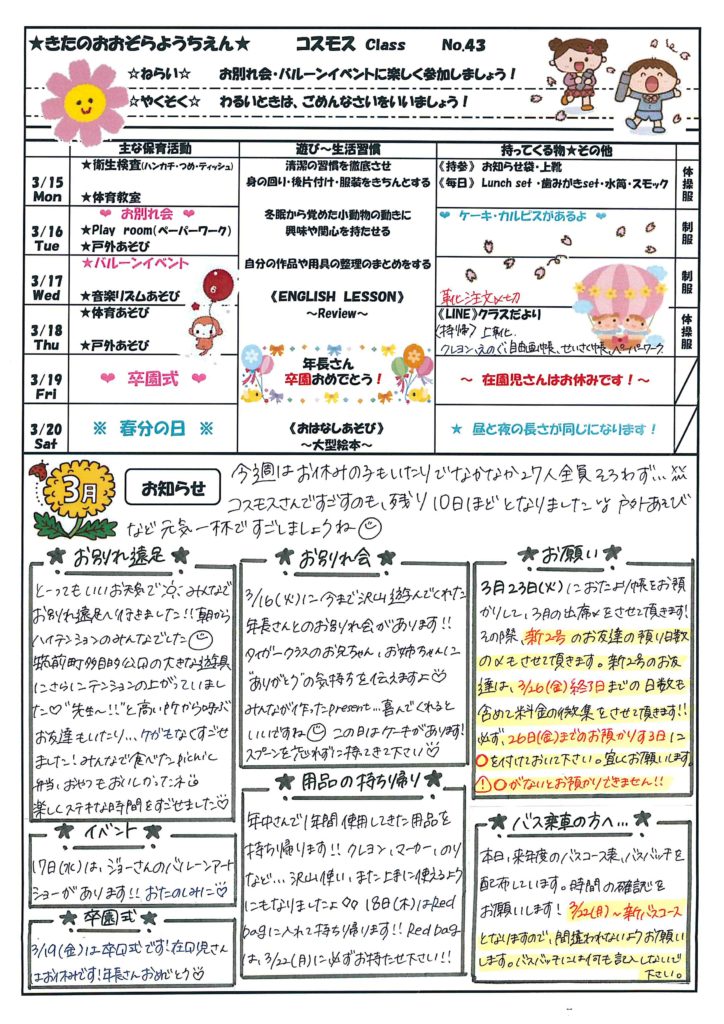 ★きたのおおぞらようちえん★ コスモス Class No.43
☆ねらい☆ お別れ会・バルーンイベントに楽しく参加しましょう！
☆やくそく☆ わるいときは、ごめんなさいをいいましょう！
主な保育活動 遊び～生活習慣 持ってくる物★その他
3/15 Mon
★衛生検査(ハンカチ・つめ・ティッシュ)
★体育教室
清潔の習慣を徹底させ
身の回り・後片付け・服装をきちんとする
《持参》 お知らせ袋・上靴
《毎日》 Lunch set・歯みがきset・水筒・スモック
体操服
3/16 Tue
❤ お別れ会 ❤
★Play room(ペーパーワーク)
★戸外あそび
冬眠から覚めた小動物の動きに
興味や関心を持たせる
❤ ケーキ・カルピスがあるよ ❤
制服
3/17 Wed
★バルーンイベント
★音楽リズムあそび
自分の作品や用具の整理のまとめをする
《ENGLISH LESSON》
～Review～
靴注文〆切
制服
3/18 Thu
★体育あそび
★戸外あそび
《LINE》クラスだより
〈持帰〉上靴.
クレヨン,えのぐ,自由画帳、せいさく帳、ペーパーワーク
体操服
3/19 Fri
❤ 卒園式 ❤
年長さん
卒園おめでとう！
～ 在園児さんはお休みです！～
3/20 Sat
※ 春分の日 ※
《おはなしあそび》
～大型絵本～
★ 昼と夜の長さが同じになります！
3月
お知らせ
今週はお休みの子もいたりでなかなか27人全員そろわず…
コスモスさんですごすのも、残り10日ほどとなりました 戸外あそび
など元気一杯ですごしましょうね
★お別れ遠足★
とーってもいいお天気で、みんなで
お別れ遠足へ行きました!!朝から
ハイテンションのみんなでした
筑前町多目的公園の大きな遊具
にさらにテンションの上がっていまし
た♡"先生〜!!"と高い所から呼ぶ
お友達もいたり…ケガもなくすごせ
ました！みんなで食べたpicnic
弁当、おやつもおいしかったネ
楽しくステキな時間をすごせました♡
★お別れ会★
3/16(火)に今まで沢山遊んでくれた
年長さんとのお別れ会があります!!
タイガークラスのお兄ちゃん、お姉ちゃんに
"ありがとう"の気持ちを伝えますよ♡
みんなが作ったpresent…喜んでくれると
いいですね この日はケーキがあります!
スプーンを忘れずに持ってきて下さい♡
★お願い★
3月23日(火)におたより帳をお預
かりして、3月の出席〆をさせて頂きます!
その際、新2号のお友達の預り日数
の〆もさせて頂きます。新2号のお友
達は、3/26(金)終了日までの日数も
含めて料金の徴集をさせて頂きます!!
必ず、26日(金)までのお預かりする日に
○を付けておいて下さい。宜しくお願いします。
!○がないとお預かりできません!!
★イベント★
17日(水)は、ジョーさんのバルーンアート
ショーがあります!!おたのしみに♡
★卒園式★
3/19(金)は卒園式です!在園児さん
はお休みです!年長さんおめでとう
★用品の持ち帰り★
年中さんで1年間使用してきた用品を
持ち帰ります!!クレヨン、マーカー、のり
など…沢山使い、また上手に使えるよう
にもなりましたよ◇◇ 18日(木)はRed
bagに入れて持ち帰ります!!Red bag
は、3/22(月)に必ずお持たせ下さい!!
★バス乗車の方へ…★
本日、来年度のバスコース表、バスバッチを
配布しています。時間の確認を
お願いします! 3/22(月)〜新バスコース
となりますので、間違われないようお願い
します。バスバッチには何も記入しないで
下さい。